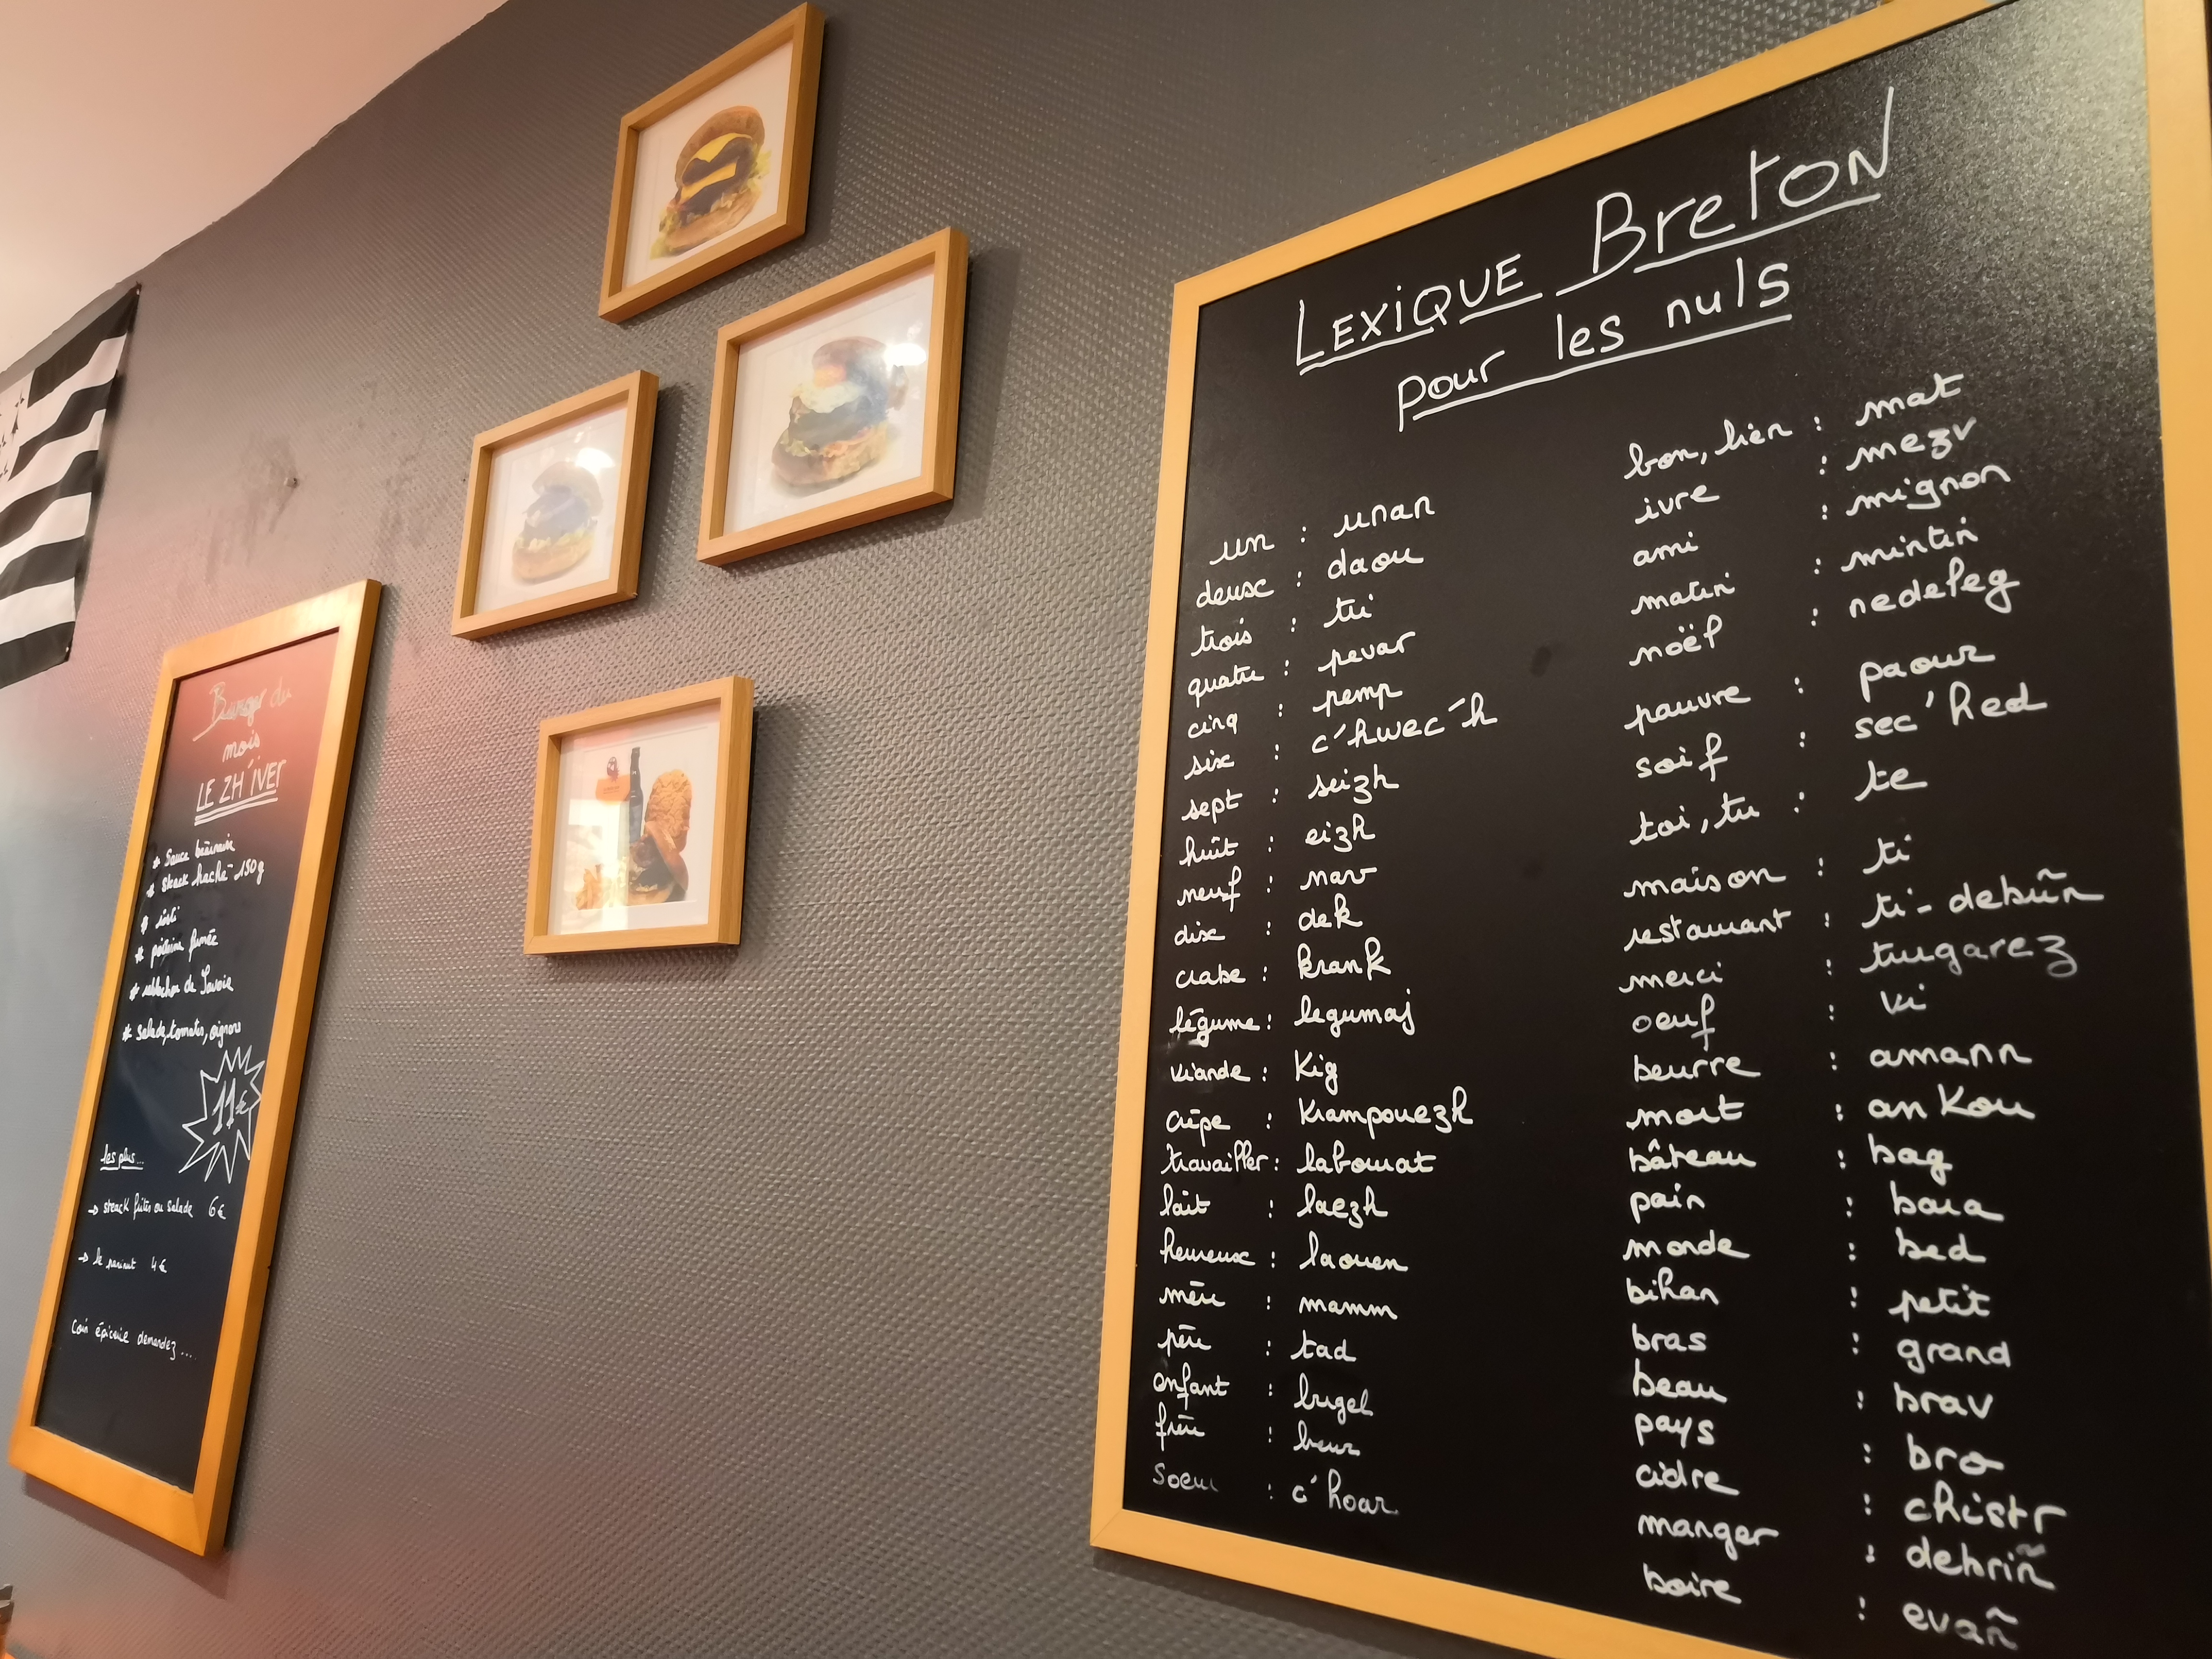 Burger du
mois
LE ZH'IVER
* Sauce béarnaise
* steack haché 150g
* rösti
* poitrine fumée
* reblochon de Savoie
* salade, tomates, oignons
11€
les plus...
→ steack frites ou salade 6€
→ le 4€
Coin épicerie demandez....
LEXIQUE BretoN
pour les nuls
un : unan
deux : daou
trois : tri
quatre : pevar
cinq : pemp
six : c'hwec'h
sept : seizh
huit : eizh
neuf : nav
dix : dek
crabe : krank
légume : legumaj
viande : kig
crêpe : krampouezh
travailler : labourat
lait : laezh
heureux : laouen
mère : mamm
père : tad
enfant : bugel
frère : breur
soeur : c'hoar
bon, bien : mat
ivre : mezv
ami : mignon
matin : mintin
noël : nedeleg
pauvre : paour
soif : sec'hed
toi, tu : te
maison : ti
restaurant : ti-debriñ
merci : trugarez
oeuf : vi
beurre : amann
mort : ankou
bâteau : bag
pain : bara
monde : bed
bihan : petit
bras : grand
beau : brav
pays : bro
cidre : chistr
manger : debriñ
boire : evañ